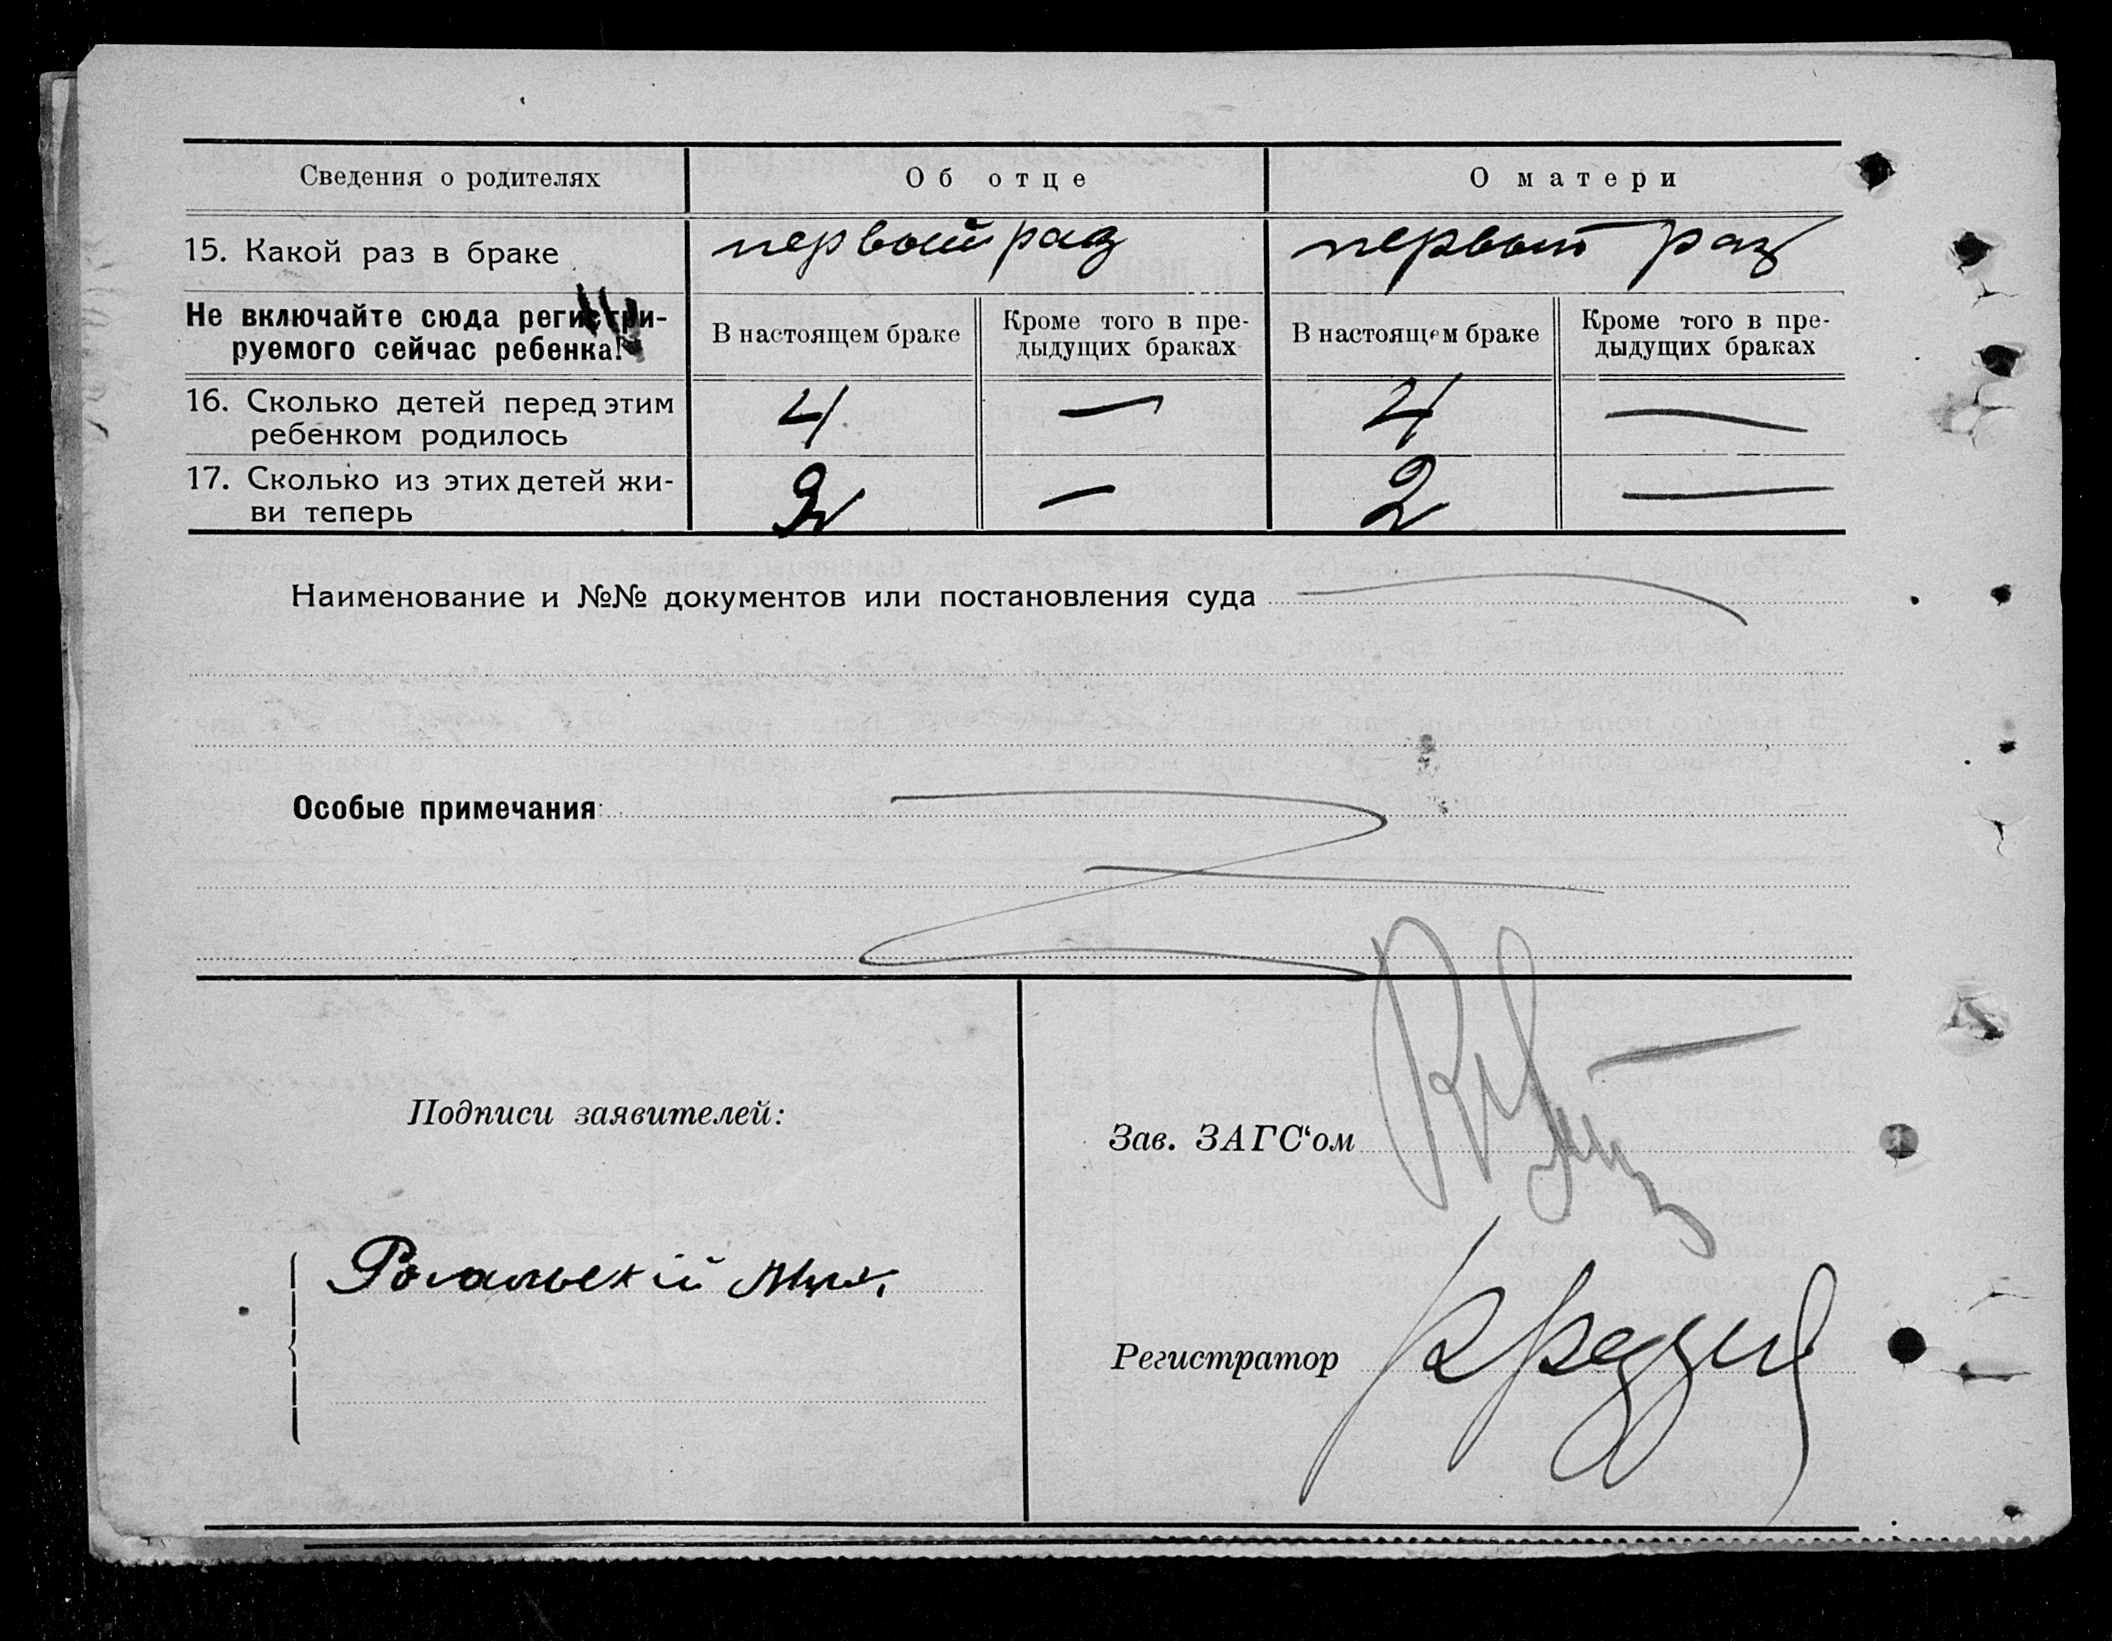 Сведения о родителях Об отце О матери
15. Какой раз в браке первый раз первый раз
Не включайте сюда регистри-
руемого сейчас ребенка!
В настоящем браке
Кроме того в пре-
дыдущих браках
В настоящем браке
Кроме того в пре-
дыдущих браках
16. Сколько детей перед этим
ребенком родилось
4 — 4 —
17. Сколько из этих детей жи-
ви теперь
2 — 2 —
Наименование и №№ документов или постановления суда
Особые примечания:
Подписи заявителей:
Рогальскій Мих.
Зав. ЗАГС‘ом
Регистратор